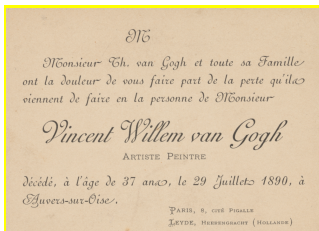 M
Monsieur Th. van Gogh et toute sa Famille
ont la douleur de vous faire part de la perte qu'ils
viennent de faire en la personne de Monsieur
Vincent Willem van Gogh
ARTISTE PEINTRE
décédé, à l'âge de 37 ans, le 29 Juillet 1890, à
Auvers-sur-Oise.
PARIS, 8, CITÉ PIGALLE
LEYDE, HEERENGRACHT (HOLLANDE)